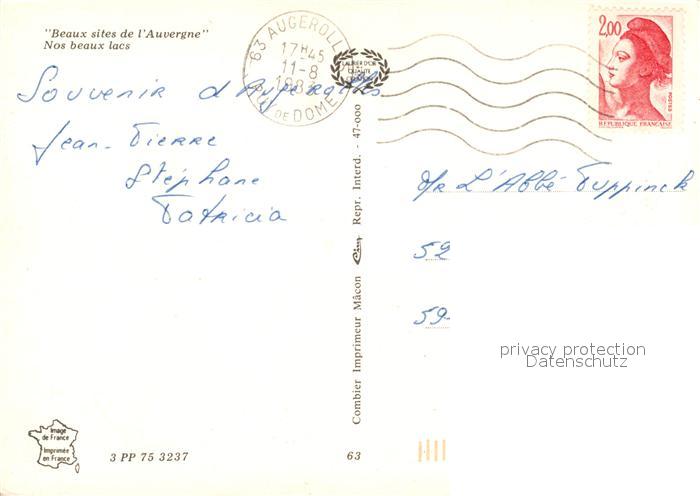 "Beaux sites de l'Auvergne"
Nos beaux lacs
63 AUGEROLLES
17H45
11-8
PUY DE DOME
2,00
POSTES
REPUBLIQUE FRANÇAISE
Souvenir d'Augerolles
Jean-Pierre
Stéphane
Patricia
Mr L'Abbé Duppinck
59
59
privacy protection
Datenschutz
Combier Imprimeur Mâcon Cim Repr. Interd. - 47-000
Image
de France
Imprimée
en France
3 PP 75 3237
63